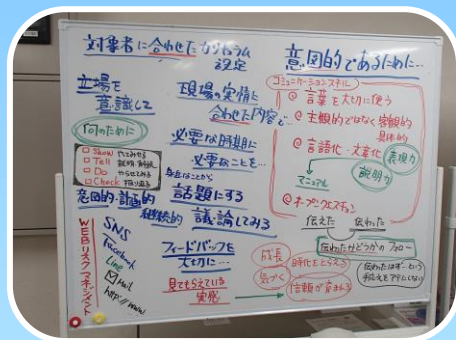 対象者に合わせたカリキュラム
設定
立場を
意識して
何のために
□ Show やってみせる
□ Tell 説明・解説
□ Do やらせてみる
□ Check ふり返る
意図的・計画的
継続的
WEBリスクマネジメント
SNS
Facebook
Line
Mail
http://www
現場の実情に
合わせた内容で…
必要な時期に
必要なことを…
身近なことから
話題にする
議論してみる
フィードバックを
大切に…
見てもらえている
実感
意図的であるために…
コミュニケーションスキル
@ 言葉を大切に使う
@ 主観的ではなく客観的
具体的
@ 言語化・文章化
表現力
マニュアル
説明力
@ オープンクエスチョン
伝えた
伝わった
伝わったかどうかのフォロー
成長
気づく
変化をとらえる
信頼が育まれる
伝わったはず…という